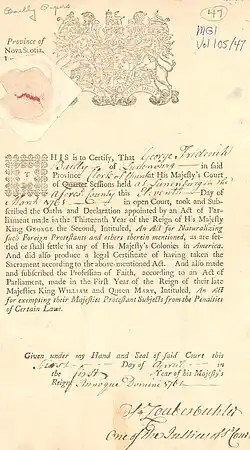 Bailly Papers
47
MG1
Vol 105/47
Province of
Nova Scotia.
THIS is to Certify, That George Frederick
Bailly of Lunenburg in said
Province His Majesty's Court
of Quarter Sessions held at Lunenburg in the
County this Day of
in open Court, took and Sub-
scribed the Oaths and Declaration appointed by an Act of Par-
liament made in the Thirteenth Year of the Reign of His Majesty
King GEORGE the Second, Intituled, An Act for Naturalizing
such Foreign Protestants and others therein mentioned, as are set-
tled or shall settle in any of His Majesty's Colonies in America.
And did also produce a legal Certificate of having taken the
Sacrament according to the above-mentioned Act. And also made
and subscribed the Profession of Faith, according to an Act of
Parliament, made in the First Year of the Reign of their late
Majesties King WILLIAM and Queen MARY, Intituled, An Act
for exempting their Majesties Protestant Subjects from the Penalties
of Certain Laws.
Given under my Hand and Seal of said Court this
Day of
in the first Year of his Majesty's
Reign Annoque Domini 176
Zouberbuhler
One of the Justices of Court